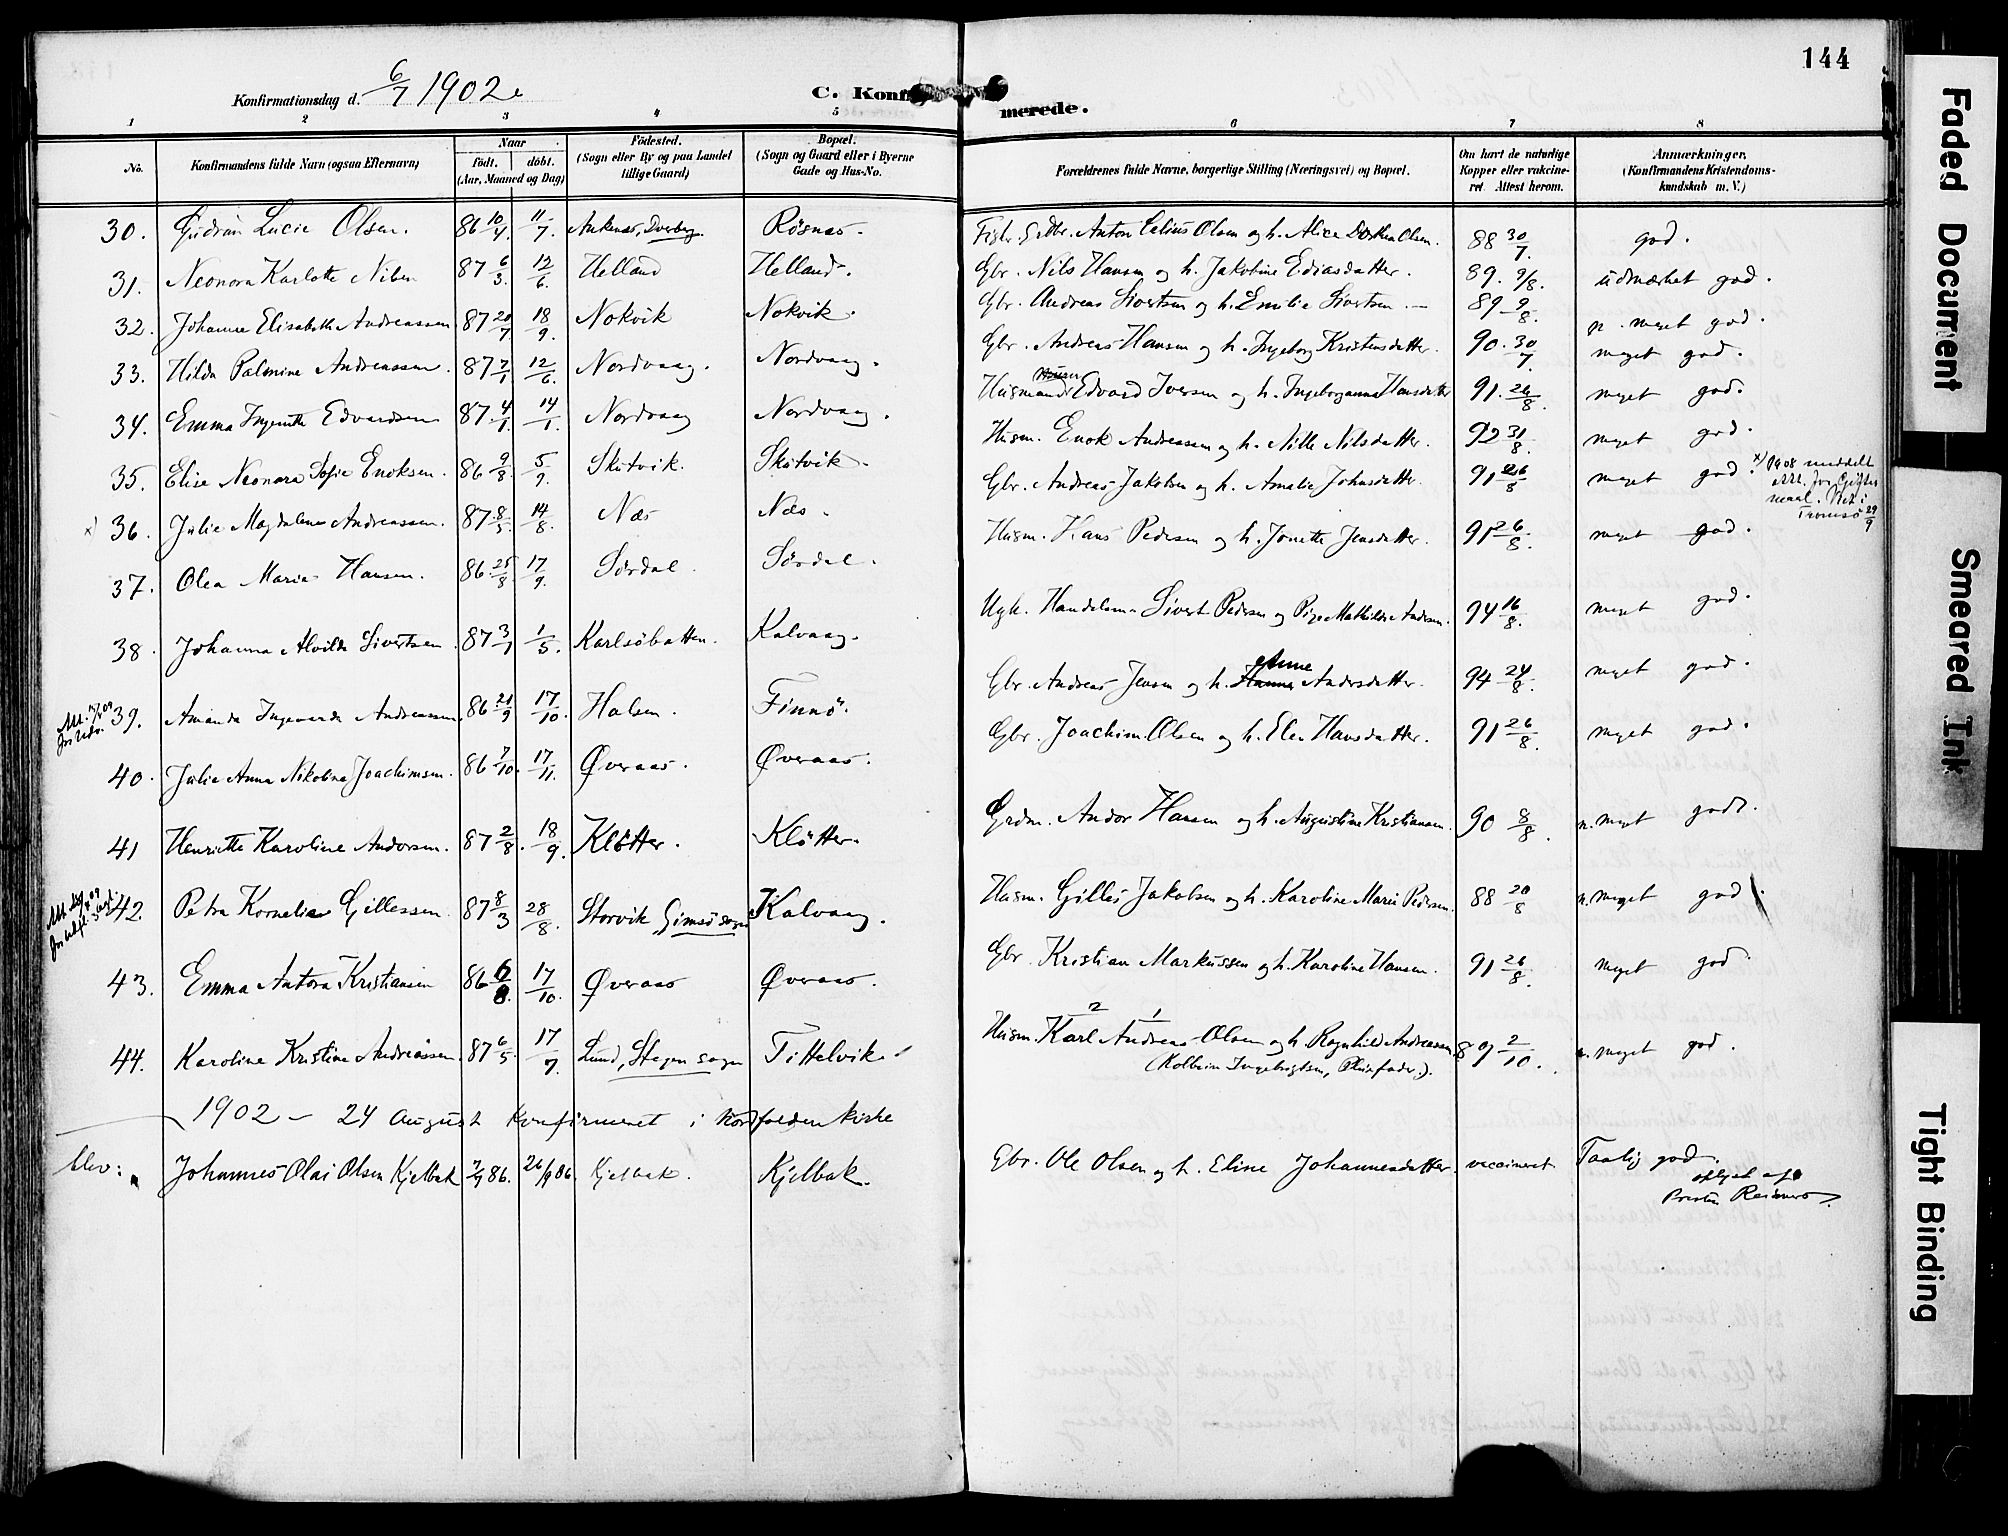 144
Konfirmationsdag d. 6/7 1902.
C. Konf merede.
1 2 3 4 5 6 7 8
No. Konfirmandens fulde Navn (ogsaa Efternavn) Naar født. døbt. (Aar, Maaned og Dag) Fødested. (Sogn eller By og paa Landet tillige Gaard) Bopæl. (Sogn og Gaard eller i Byerne Gade og Hus-No. Forældrenes fulde Navne, borgerlige Stilling (Næringsvei) og Bopæl. Om havt de naturlige Kopper eller vakcineret. Attest herom. Anmærkninger. (Konfirmandens Kristendomskundskab m. V.)
30. Gudrun Lucie Olsen. 86 10/4 11/7 Ankenæs, Dverberg. Røsnæs. Anton Celius Olsen og h. Alice Olsen. 88 30/7. god.
31. Neonora Karlotte Nilsen 87 6/3. 12/6. Helland Helland. Gbr. Nils Hansen og h. Jakobine Ediasdatter. 89. 9/8. udmærket god.
32. Johanne Elisabeth Andreassen 87 20/7. 18/9. Nokvik Nokvik. Gbr. Andreas Sivertsen og h. Emilie Sivertsen. 89 9/8. n. meget god.
33. Hilda Palmine Andreassen. 87 7/1 12/6. Nordvaag. Nordvaag. Gbr. Andreas Hansen og h. Ingeborg Kristensdatter. 90. 30/7. meget god.
34. Emma Edvardsen 87. 4/1. 14/1. Nordvaag Nordvaag. Husmand Edvard Iversen og h. Ingeborganna Hansdatter 91. 26/8. meget god.
35. Elise Neonora Sofie Enoksen. 86 9/8. 5/9. Skutvik. Skutvik. Husm. Enok Andreassen og h. Nille Nilsdatter. 92 31/8. meget god.
x) 36. Julie Magdalena Andreassen. 87. 8/5. 14/8. Næs Næs. Gbr. Andreas Jakobsen og h. Amalie Johnsdatter. 91 26/8 meget god. x) 1908 meddelt Att. for Giftermaal. Viet i Tromsø 29/9
37. Olea Marie Hansen. 86. 25/8 17/9. Sørdal. Sørdal. Husm. Hans Pedersen og h. Jonette Jensdatter. 91 26/8. meget god.
38. Johanna Alvilde Sivertsen 87 3/1 1/5. Karlsøbotten. Kalvaag. Ugk. Handelsm. Sivert Pedersen og Pige Mathilde Andersen. 94 16/8. meget god.
39. Amanda Ingevarda Andreassen. 86 21/9 17/10. Halsen. Finnø. Gbr. Andreas Jensen og h. Hanna Anne Andersdatter. 94 24/8. meget god.
40. Julie Anna Nikoline Joachimsen. 86 7/10. 17/11. Øveraas. Øveraas. Gbr. Joachim Olsen og h. Elen Hansdatter. 91 26/8. meget god.
41 Henriette Karoline Andorsen. 87 2/8. 18/9. Kløtter. Kløtter. Grdm. Andor Hansen og h. Augustine Kristiansen. 90 8/8. n. meget godt.
42. Petra Kornelia Gillessen. 87 8/3 28/8. Storvik, Gimsø sogn Kalvaag. Husm. Gilles Jakobsen og h. Karoline Marie Pedersen. 88 20/8 n. meget god.
43. Emma Antora Kristiansen 86 6/8. 17/10. Øveraas Øveraas. Gbr. Kristian Markussen og h. Karoline Hansen. 91 26/8. meget god.
44. Karoline Kristine Andreassen. 87 6/5. 17/7. Lund, Stegen sogn Tittelvik. Husm. Karl Andreas Olsen og h. Ragnhild Andreassen (Kolbein Ingebrigtsen, Pleiefader.). 89 2/10. n. meget god.
1902 – 24 August Konfirmeret i Nordfolden kirke
Johannes Olai Olsen Kjelbak 86. 26/9 86. Kjelbak. Kjelbak. Gbr. Ole Olsen og h. Eline Johannesdatter. vaccineret Taalig god.
Faded Document
Smeared Ink
Tight Binding